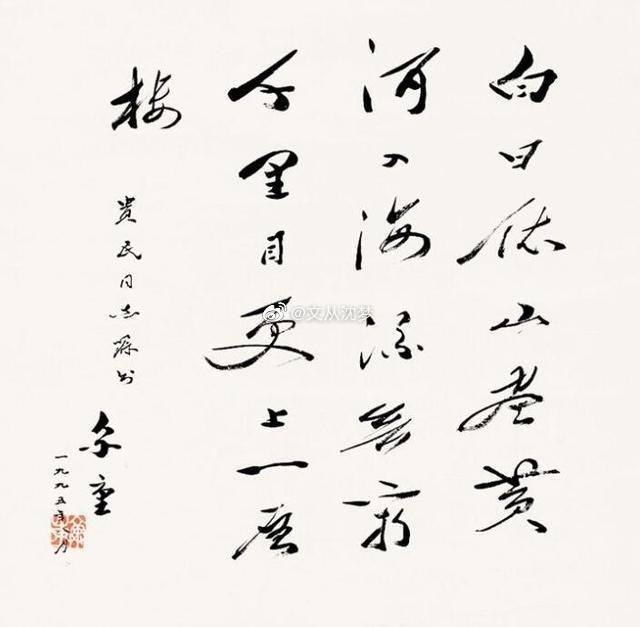 白日依山尽黄
河入海流欲穷
千里目更上一层
楼
贵民同志属书
一九九五年
@文从沈梦